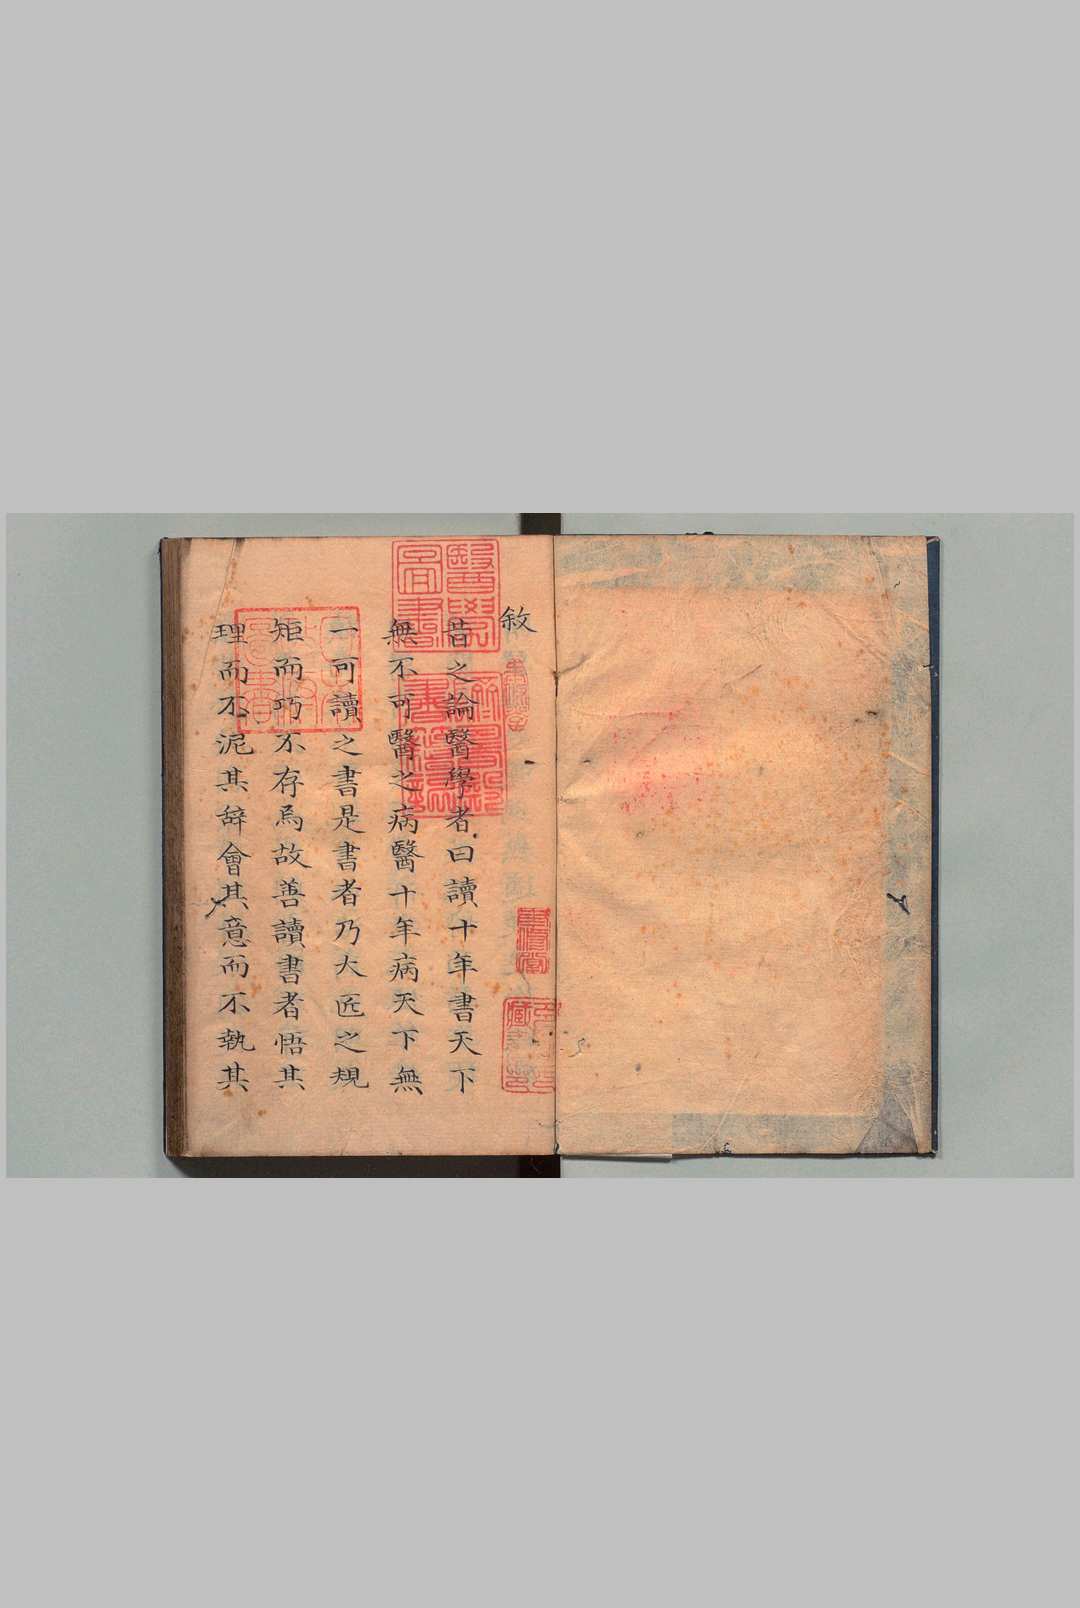 敘
昔之論醫學者曰讀十年書天下
無不可醫之病醫十年病天下無
一可讀之書是書者乃大匠之規
矩而巧不存焉故善讀書者悟其
理而不泥其辭會其意而不執其